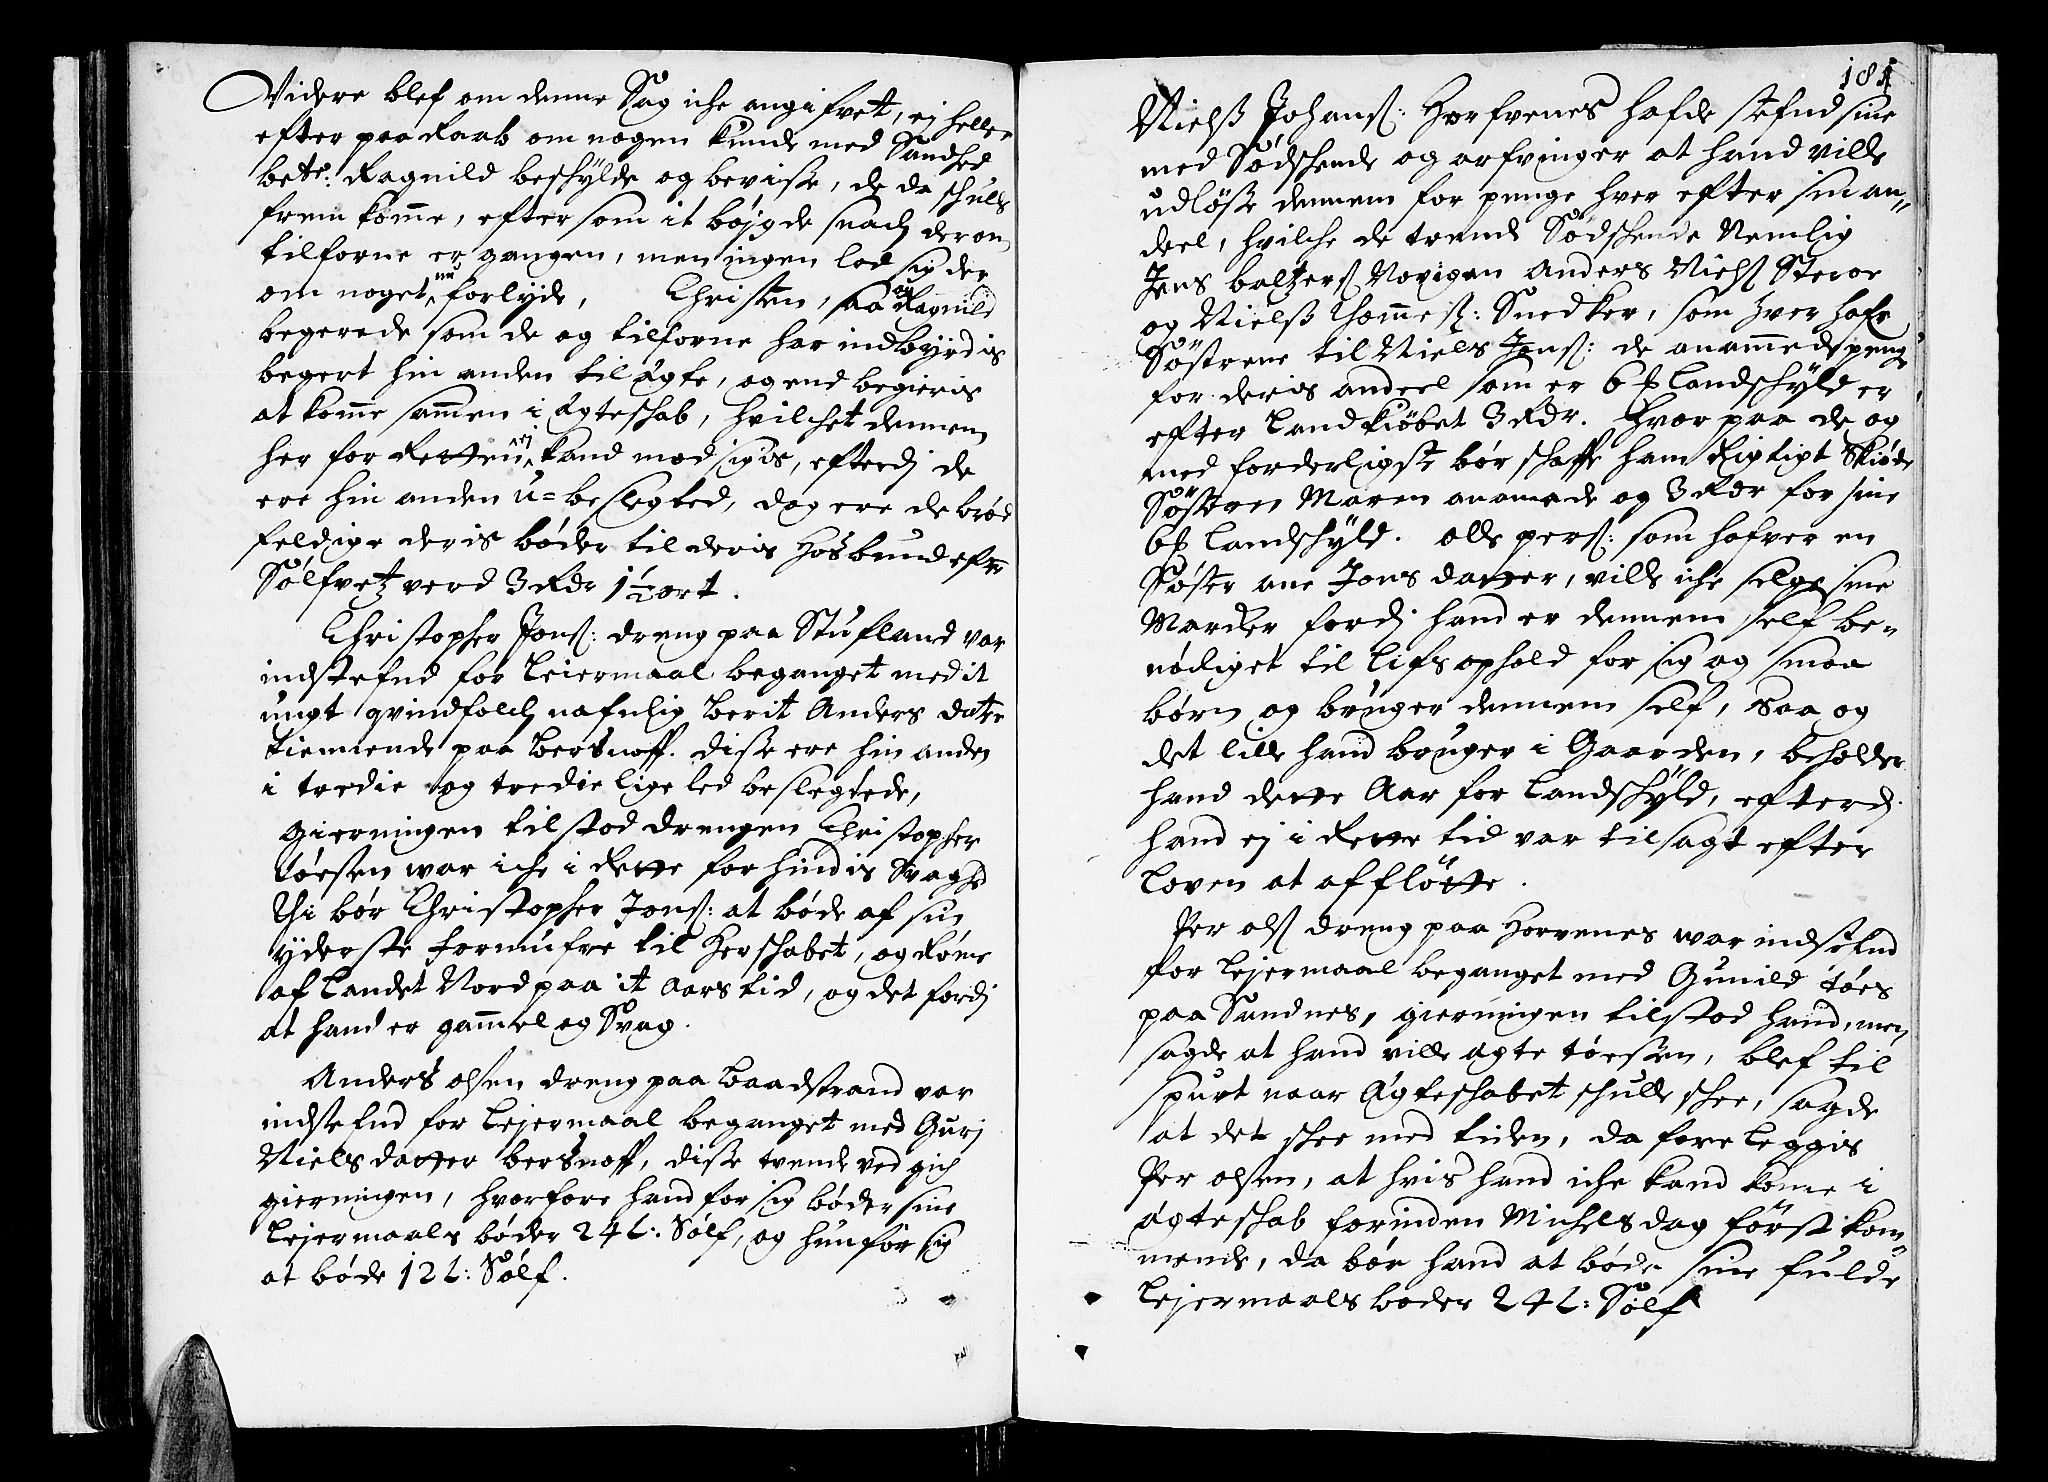 Videre blef om denne Sag iche angifvet, ej heller
efter paaRaab om nogen kunde med Sandhed
bete: Ragnild beschylde og bevisse, de da schulle
frem komme, eftersom it böjgde snach derom
tilforne er gangen, men ingen lod sig der
om noget nu forlyde, Christen, saa og Ragnild
begerede som de og tilforne har indbyrdis
begert hin anden til ægte, og end begieris
at komme sammen i Ægteschab, hvilchet dennem
her for Retten ej kand modsigis, efterdj de
ere hin anden u=beslegted, dog ere de brøde
feldige deris bøder til deris Hosbund efter
Sølfvetz verd 3 Rdr 1½ ort.
Christopher Jonsß: dreng paa Stufland var
indstefnd for Leiermaal beganget med it
ungt qvindfolch nafnlig Berit Anders datter
tiennende paa Bersnoff. disse ere hin anden
i tredie og tredie lige led beslegtede,
gierningen tilstod drengen Christopher
tøesen war iche i Rette for hindis Svaghed
Thi bør Christopher Jonß: at bøde af sin
yderste formufve til Herschabet, og Røme
af Landet Nord paa it Aars tid, og det fordj
at hand er gammel og Svag.
Anders olsen dreng paa Baadstrand var
indstefnd for Lejermaal beganget med Gurj
Niels datter Bersnoff, disse tvende ved gich
gierningen, hvorfore hand for sig bøder sine
Lejermaals bøder 24 L: Sølf, og hun for sig
at bøde 12 L: Sølf.
181
Nielß Johanß: Horfvenes hafde stefnd sine
med Sødschende og arfvinger at hand ville
udløsse dennem for penge hver efter sin an„
deel, hvilche de trende Sødschende Nemlig
Jens baltzerß Novigen Anders Nielß Steroe
og Nielß Thommeß: Snedker, som hver hafr
Søstrene til Niels Jonß: de anammede penge
for deris andeel som er 6 ß Landschyld er
efter Landkiöbet 3 Rdr. Hvor paa de og
med forderligste bør schaffe ham Rigtigt Skiøde
Søsteren Maren anamade og 3 Rdr for sine
6 ß Landschyld. Olle perß: som hafver en
Søster ane Jons datter, ville iche selge sine
Marcker fordj hand er dennem self be„
nødiget til Lifs ophold for sig og smaa
børn og bruger dennem self, saa og
det lille hand bruger i Gaarden, beholder
hand dette Aar for Landschyld, efterdj
hand ej i Rette tid var tilsagt efter
Loven at afflötte.
Per olß dreng paa Horvenes war indstefnd
for Lejermaal beganget med Gunild tøes
paa Sandnes, gierningen tilstod hand, men
sagde at hand ville ægte tøessen, blef til
spurt naar Ægteschabet schulle schee, sagde
at det schee med tiden, da fore leggis
Per olsen, at hvis hand iche kand kome i
ægteschab forinden Michels dag först kom„
mende, da bør hand at bøde sine fulde
Lejermaals bøder 24 L: Sølf